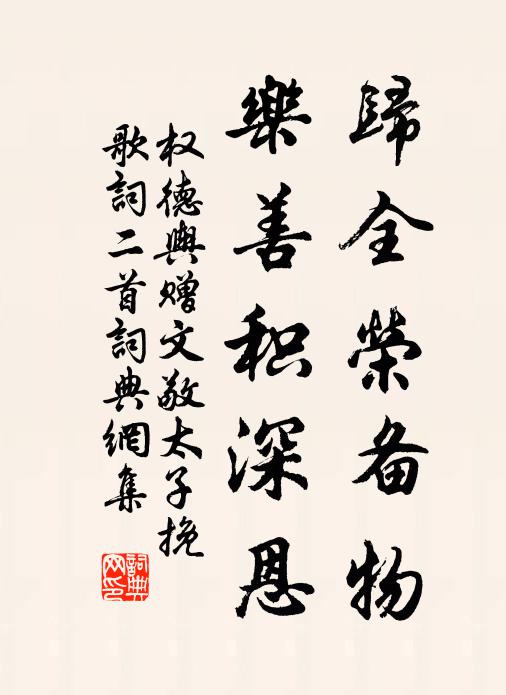 歸全榮备物
樂善积深恩
权德輿赠文敬太子挽
歌詞二首詞典網集
詞典
网印